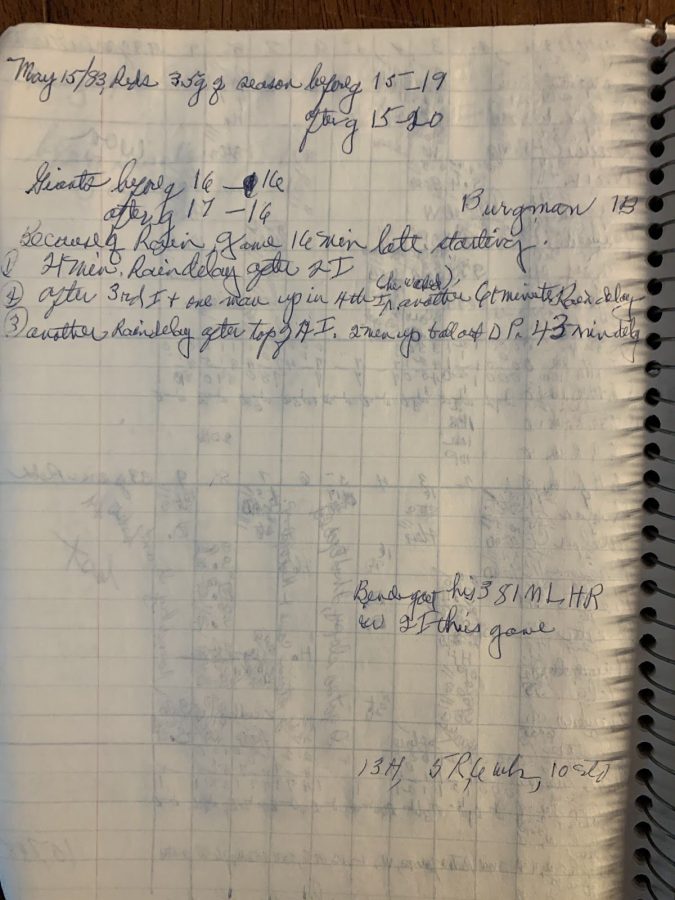 May 15/83, Reds 35 g of season before g 15-19
after g 15-20
Giants before g 16 - 16
after g 17 - 16
Burgman 1B
Because of Rain game 16 min late starting.
① 24 min. Rain delay after 2 I
② after 3rd I + one man up in 4th I (he walked), another 6+ minute Rain delay
③ another Rain delay after top of 4 I. 2 men up DP. 43 min delay
got his 381 ML HR
in 2 I this game
13 H, 5 R, 6 wh, 10